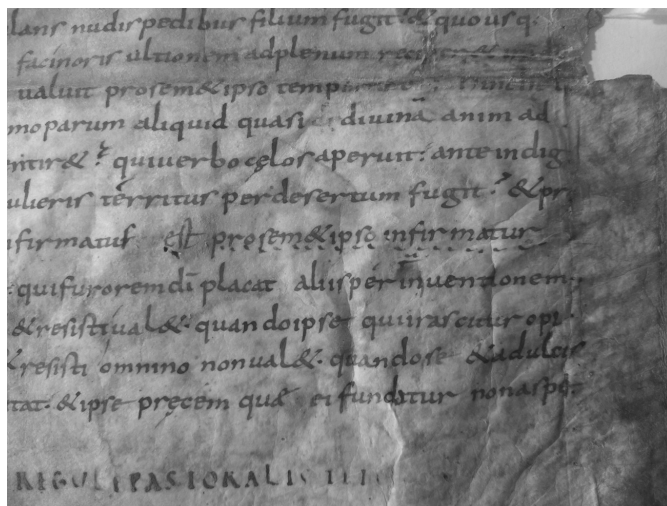 lans nudis pedibus filium fugit & quo usq.
facinoris ultionem adplenum
ualuit prosem&ipso tempore
mo parum aliquid quasi diuinā anim ad
ntir& qui uerbo cęlos aperuit. ante indig
ulieris territus per desertum fugit. & pr
nfirmatus est prosem&ipso infirmatur
qui furorem di placat aliis per inuentionem
& resisti ual&. quando ipse qui irascitur opi
resisti omnino non ual&. quando se & a dulcis
tat. & ipse precem quæ ei fundatur non asper
REGULI PASTORALIS III